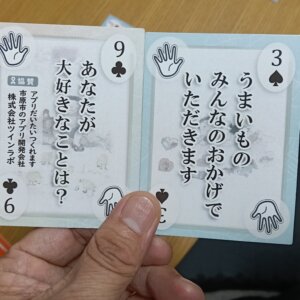 9
あなたが
大好きなことは?
協賛
アプリだいたいつくれます
市原市のアプリ開発会社
株式会社ツインラボ
9
3
うまいもの
みんなのおかげで
いただきます
3